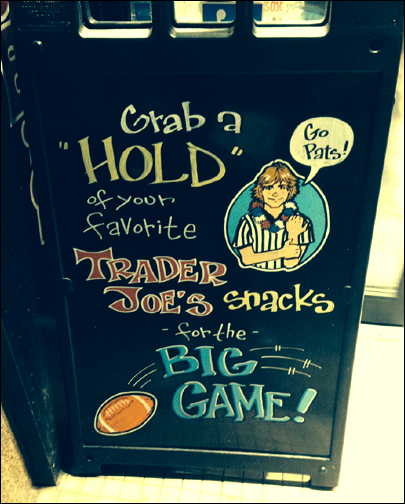 Grab a
"HOLD"
of your
favorite
Go
Pats!
TRADER
JOE'S snacks
- for the -
BIG
GAME!